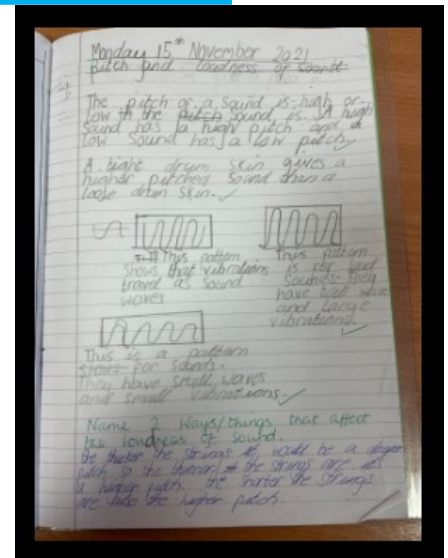 Monday 15th November 2021
pitch and loudness of sound
The pitch of a sound is high or
low is the pitch sound is. A high
sound has a high pitch and a
low sound has a low pitch
A tight drum skin gives a
higher pitched sound than a
loose drum skin.
This pattern
shows that vibrations
travel as sound
waves
This pattern
is for loud
sounds. they
have tall wave
and large
vibrations.
This is a pattern
shows for sounds.
They have small waves
and small vibrations.
Name 2 ways/things that affect
the loudness of sound.
the thicker the strings it would be a deeper
pitch so the thinner the strings are its
a higher pitch. the shorter the strings
are the higher pitch.